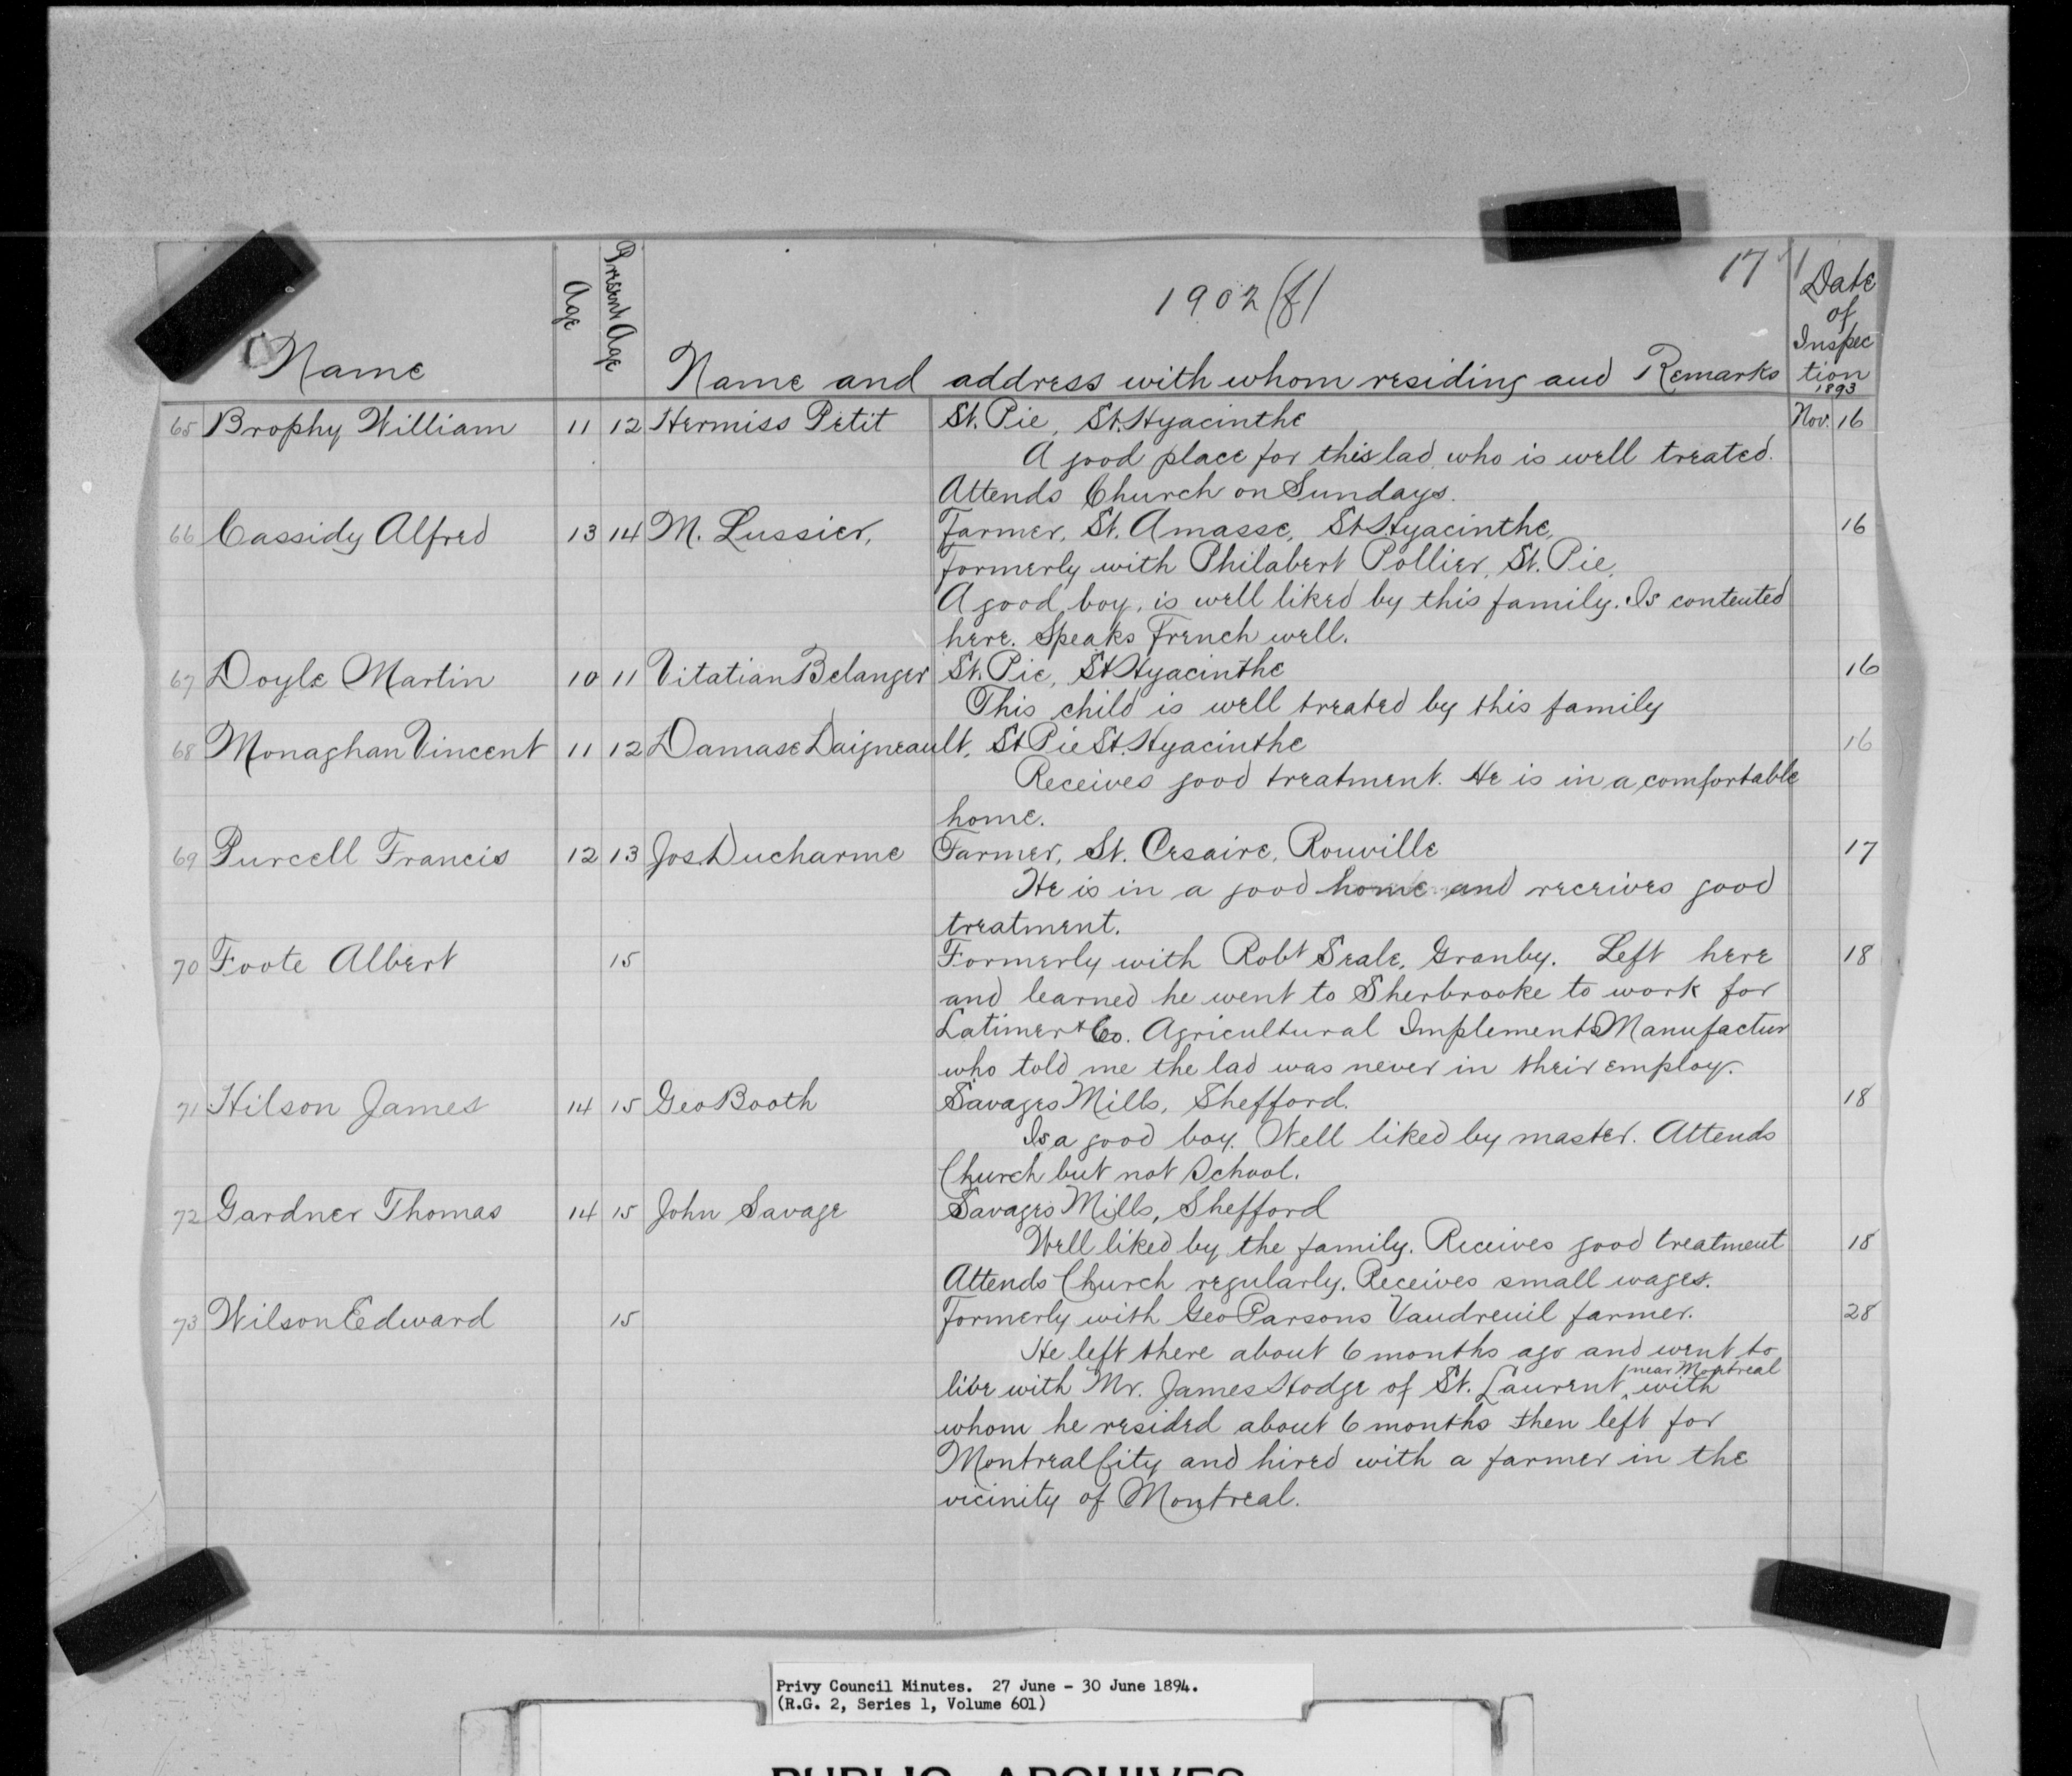 17
1902 (f)
Name
Age
Present Age
Name and address with whom residing and Remarks
Date
of
Inspec
tion
1893
65 Brophy William 11 12 Hermiss Petit St. Pie, St. Hyacinthe Nov. 16
A good place for this lad who is well treated.
Attends Church on Sundays.
66 Cassidy Alfred 13 14 M. Lussier, Farmer, St. Amasse, St Hyacinthe, 16
Formerly with Philabert Pollier, St. Pie,
A good boy, is well liked by this family. Is contented
here. Speaks French well.
67 Doyle Martin 10 11 Vitatian Belanger St. Pie, St Hyacinthe 16
This child is well treated by this family
68 Monaghan Vincent 11 12 Damase Daigneault, St Pie St. Hyacinthe 16
Receives good treatment. He is in a comfortable
home.
69 Purcell Francis 12 13 Jos Ducharme Farmer, St. Cesaire, Rouville 17
He is in a good home and receives good
treatment.
70 Foote Albert 15 Formerly with Robt Seale, Granby. Left here 18
and learned he went to Sherbrooke to work for
Latimer & Co. Agricultural Implements Manufactur
who told me the lad was never in their employ.
71 Hilson James 14 15 Geo Booth Savages Mills, Shefford. 18
Is a good boy. Well liked by master. Attends
Church but not School.
72 Gardner Thomas 14 15 John Savage Savages Mills, Shefford
Well liked by the family. Receives good treatment 18
Attends Church regularly. Receives small wages.
73 Wilson Edward 15 Formerly with Geo Parsons Vaudreuil farmer. 28
He left there about 6 months ago and went to
live with Mr. James Hodge of St. Laurent, near Montreal with
whom he resided about 6 months then left for
Montreal City and hired with a farmer in the
vicinity of Montreal.
Privy Council Minutes. 27 June - 30 June 1894.
(R.G. 2, Series 1, Volume 601)
PUBLIC ARCHIVES